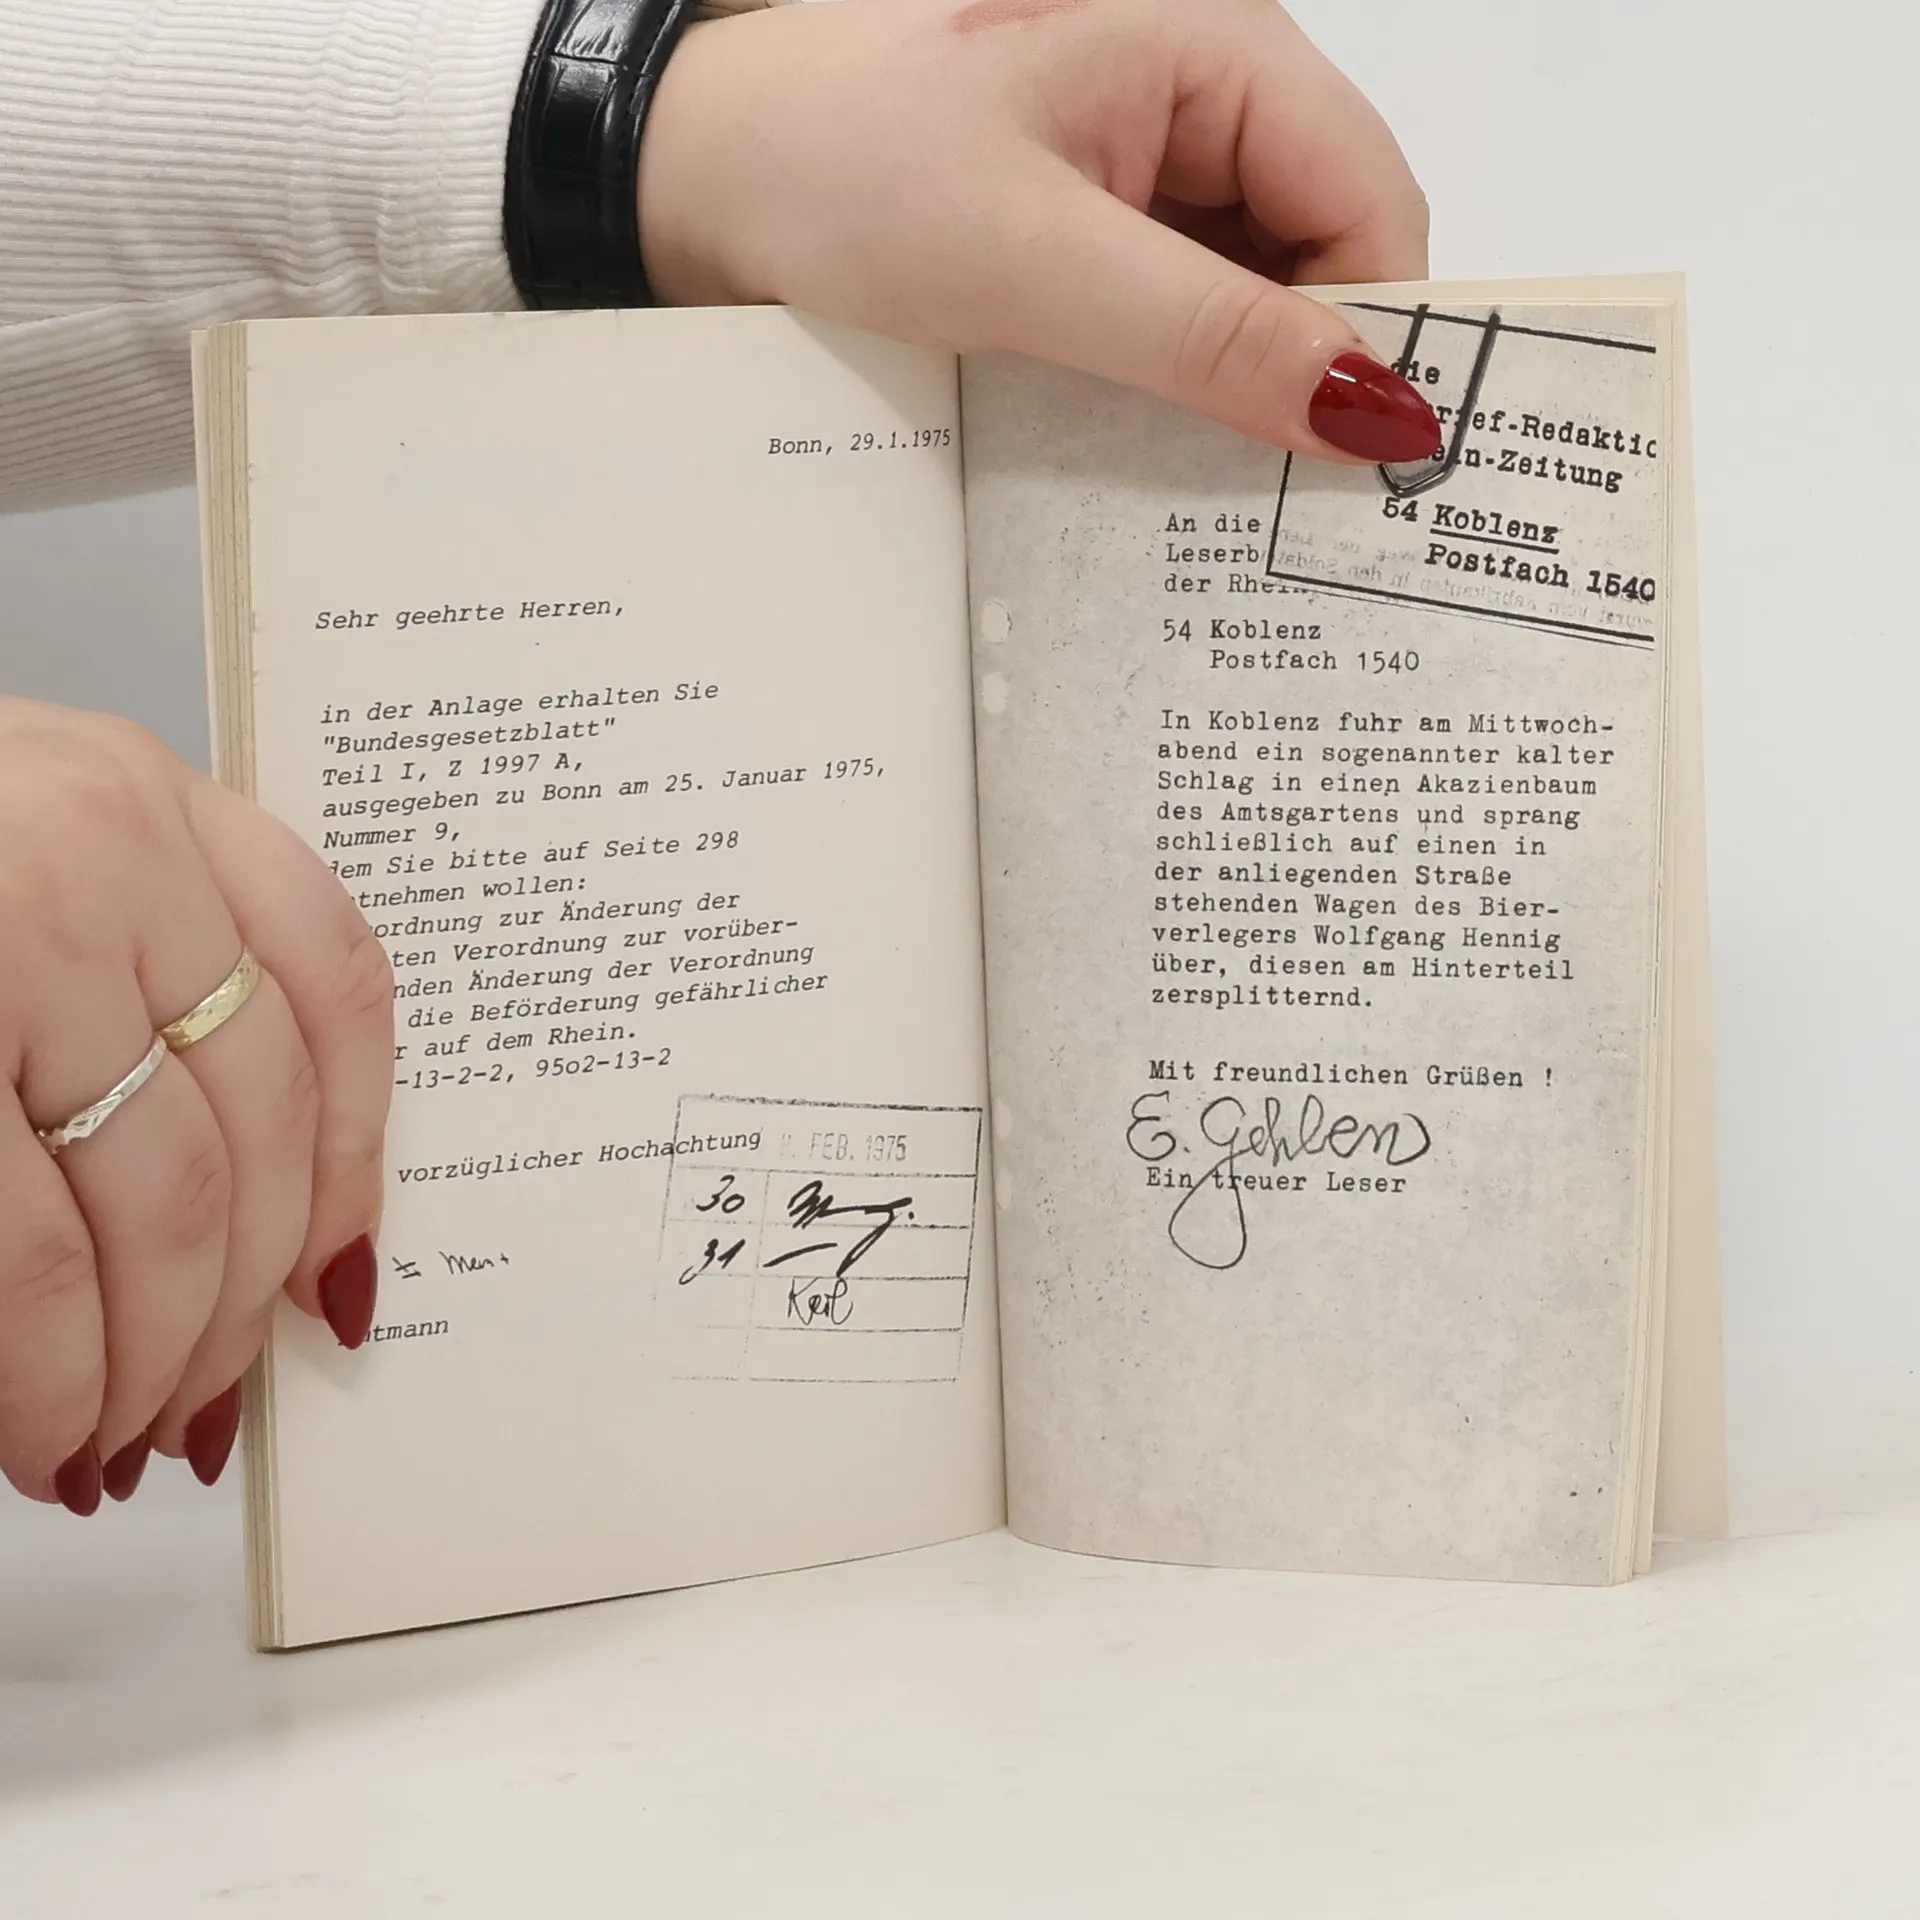 Bonn, 29.1.1975
Sehr geehrte Herren,
in der Anlage erhalten Sie
"Bundesgesetzblatt"
Teil I, Z 1997 A,
ausgegeben zu Bonn am 25. Januar 1975,
Nummer 9,
dem Sie bitte auf Seite 298
wollen:
zur Änderung der
Verordnung zur vorüber-
Änderung der Verordnung
die Beförderung gefährlicher
auf dem Rhein.
-13-2-2, 95o2-13-2
vorzüglicher Hochachtung
FEB. 1975
30
31
Keil
die
ef-Redaktio
ein-Zeitung
54 Koblenz
Postfach 1540
An die
Leserb
der Rhein
54 Koblenz
Postfach 1540
In Koblenz fuhr am Mittwoch-
abend ein sogenannter kalter
Schlag in einen Akazienbaum
des Amtsgartens und sprang
schließlich auf einen in
der anliegenden Straße
stehenden Wagen des Bier-
verlegers Wolfgang Hennig
über, diesen am Hinterteil
zersplitternd.
Mit freundlichen Grüßen !
E. Gehlen
Ein treuer Leser